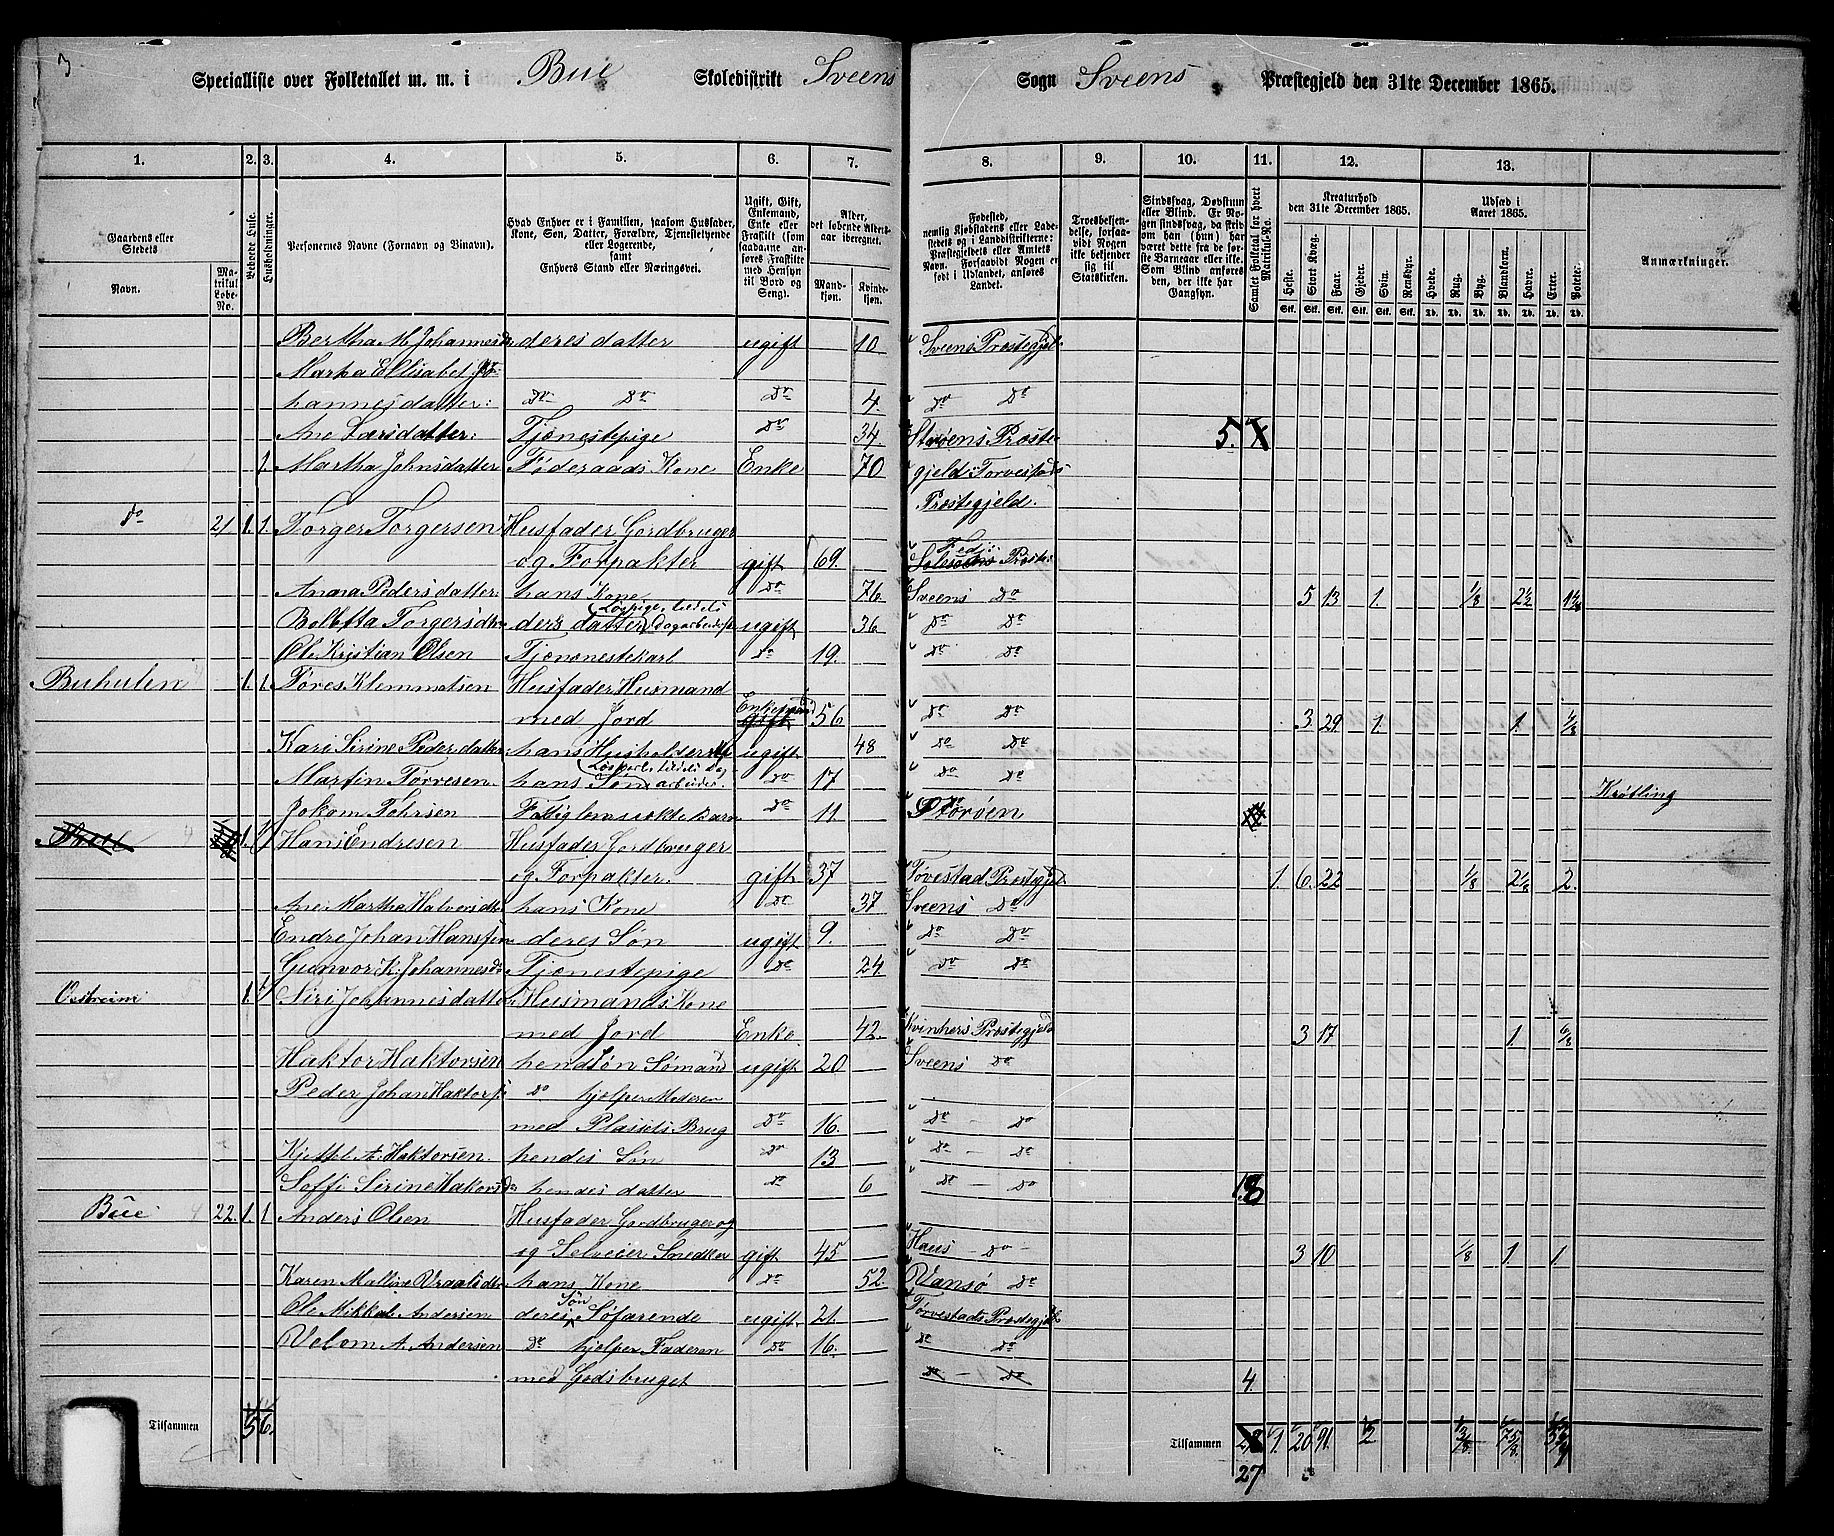 3
Specialliste over Folketallet m. m. i Bue Skoledistrikt Sveens Sogn Sveens Præstegjeld den 31te December 1865.
1. 2. 3. 4. 5. 6. 7. 8. 9. 10. 11. 12. 13.
Gaardens eller Stedets
Navn.
Matrikul Løbe-No.
Beboede Huse.
Husholdninger.
Personernes Navne (Fornavn og Binavn).
Hvad Enhver er i Familien, saasom Husfader, Kone, Søn, Datter, Forældre, Tjenestetyende eller Logerende, samt Enhvers Stand eller Næringsvei.
Ugift, Gift, Enkemand, Enke eller Fraskilt (som saadanne anføres Fraskilte med Hensyn til Bord og Seng).
Alder, det løbende Aldersaar iberegnet.
Mandkjøn. Kvindekjøn.
Fødested, nemlig Kjøbstadens eller Ladestedets og i Landdistrikterne: Præstegjeldets eller Amtets Navn. Forsaavidt Nogen er født i Udlandet, anføres Landet.
Troesbekjendelse, forsaavidt Nogen ikke bekjender sig til Statskirken.
Sindssvag, Døvstum eller Blind. Er Nogen sindssvag, da skriv om han (hun) har været dette fra de første Barneaar eller ikke. Som Blind anføres den, der ikke har Gangsyn.
Samlet Folketal for hvert Matrikul-No.
Kreaturhold den 31te December 1865.
Heste. Stort Kvæg. Faar. Gjeder. Svin. Rensdyr.
Udsæd i Aaret 1865.
Hvede. Rug. Byg. Blandkorn. Havre. Erter. Poteter.
Anmærkninger.
Bertha M. Johannesdr deres datter ugift 10 Sveens Prestegjel
Marha Ellisabet Jo-
hannesdatter: Do Do Do 4. Do Do
Ane Larsdatter: Tjenestepige Do 34 Støens Preste 5.
1 Martha Johnsdatter Føderaads Kone Enke 70 gjeld Torvestads
Prestegjeld.
Do 21 1. 1. Torger Torgersen Husfader Gordbruger
og Forpakter gift 69. Preste
Anna Pedersdatter: hans Kone Do 76 Sveens Do 5 13 1. 1/8 2 1/2
Bolletta Torgersdtr deres datter ugift 36 Do Do
Ole Kristian Olsen Tjenestekarl Do 19. Do Do
Buhulen 1. 1. Tøres Klemmetsen Husfader Husmand
med Jord Enkemand gift 56 Do Do 3 29 1. 1. 6/8
Kari Sirine Pedersdatter hans ugift 48 Do Do
Martin Torresen hans Søn Do 17 Do Do
Jokom Tøhrsen Do 11 Storøen Krøtling
1. Hans Endresen Husfader Gordbruger
og Forpakter. gift 37 Tøvestad Prestegjel 1. 6. 22 1/8 2 1/8 2.
Ane Martha Halversdtr hans Kone Do 37 Sveens Do
Endre Johan Hanssen deres Søn ugift 9. Do Do
Gunvor K. Johannesdr Tjenestepige Do 24 Do Do
Østreim 1. Siri Johannesdatter Husmands Kone
med Jord Enke 42. Kvinhers Prestegjeld 3 17 1. 6/8
Haktor Haktorsen hendSøn Sømand ugift 20 Sveens Do
Peder Johan Haktors Do hjelper Moderen
med Plassets Brug Do 16. Do - Do
Kjettel A. Haktorsen hendes Søn Do 13 Do - Do
Soffi Sirine Hakorsdr hendes datter Do 6 Do - Do 18
Büe 22. 1. 1 Anders Olsen Husfader Gordbruger og
og Selveier Snedker gift 45 Haus - Do - 3 10 1/8 1. 1.
Karen Malline hans Kone Do 52. Vansø Do
Ole Mikkal Andersen deres Søn Søfarende ugift 21. Tørvestads Prestegjeld
A. Andersen Do hjelper Faderen Do 16. Do Do
med Godsbruget Do - Do 4.
Tilsammen 5 6. Tilsammen 28 1. 20 91. 2
27